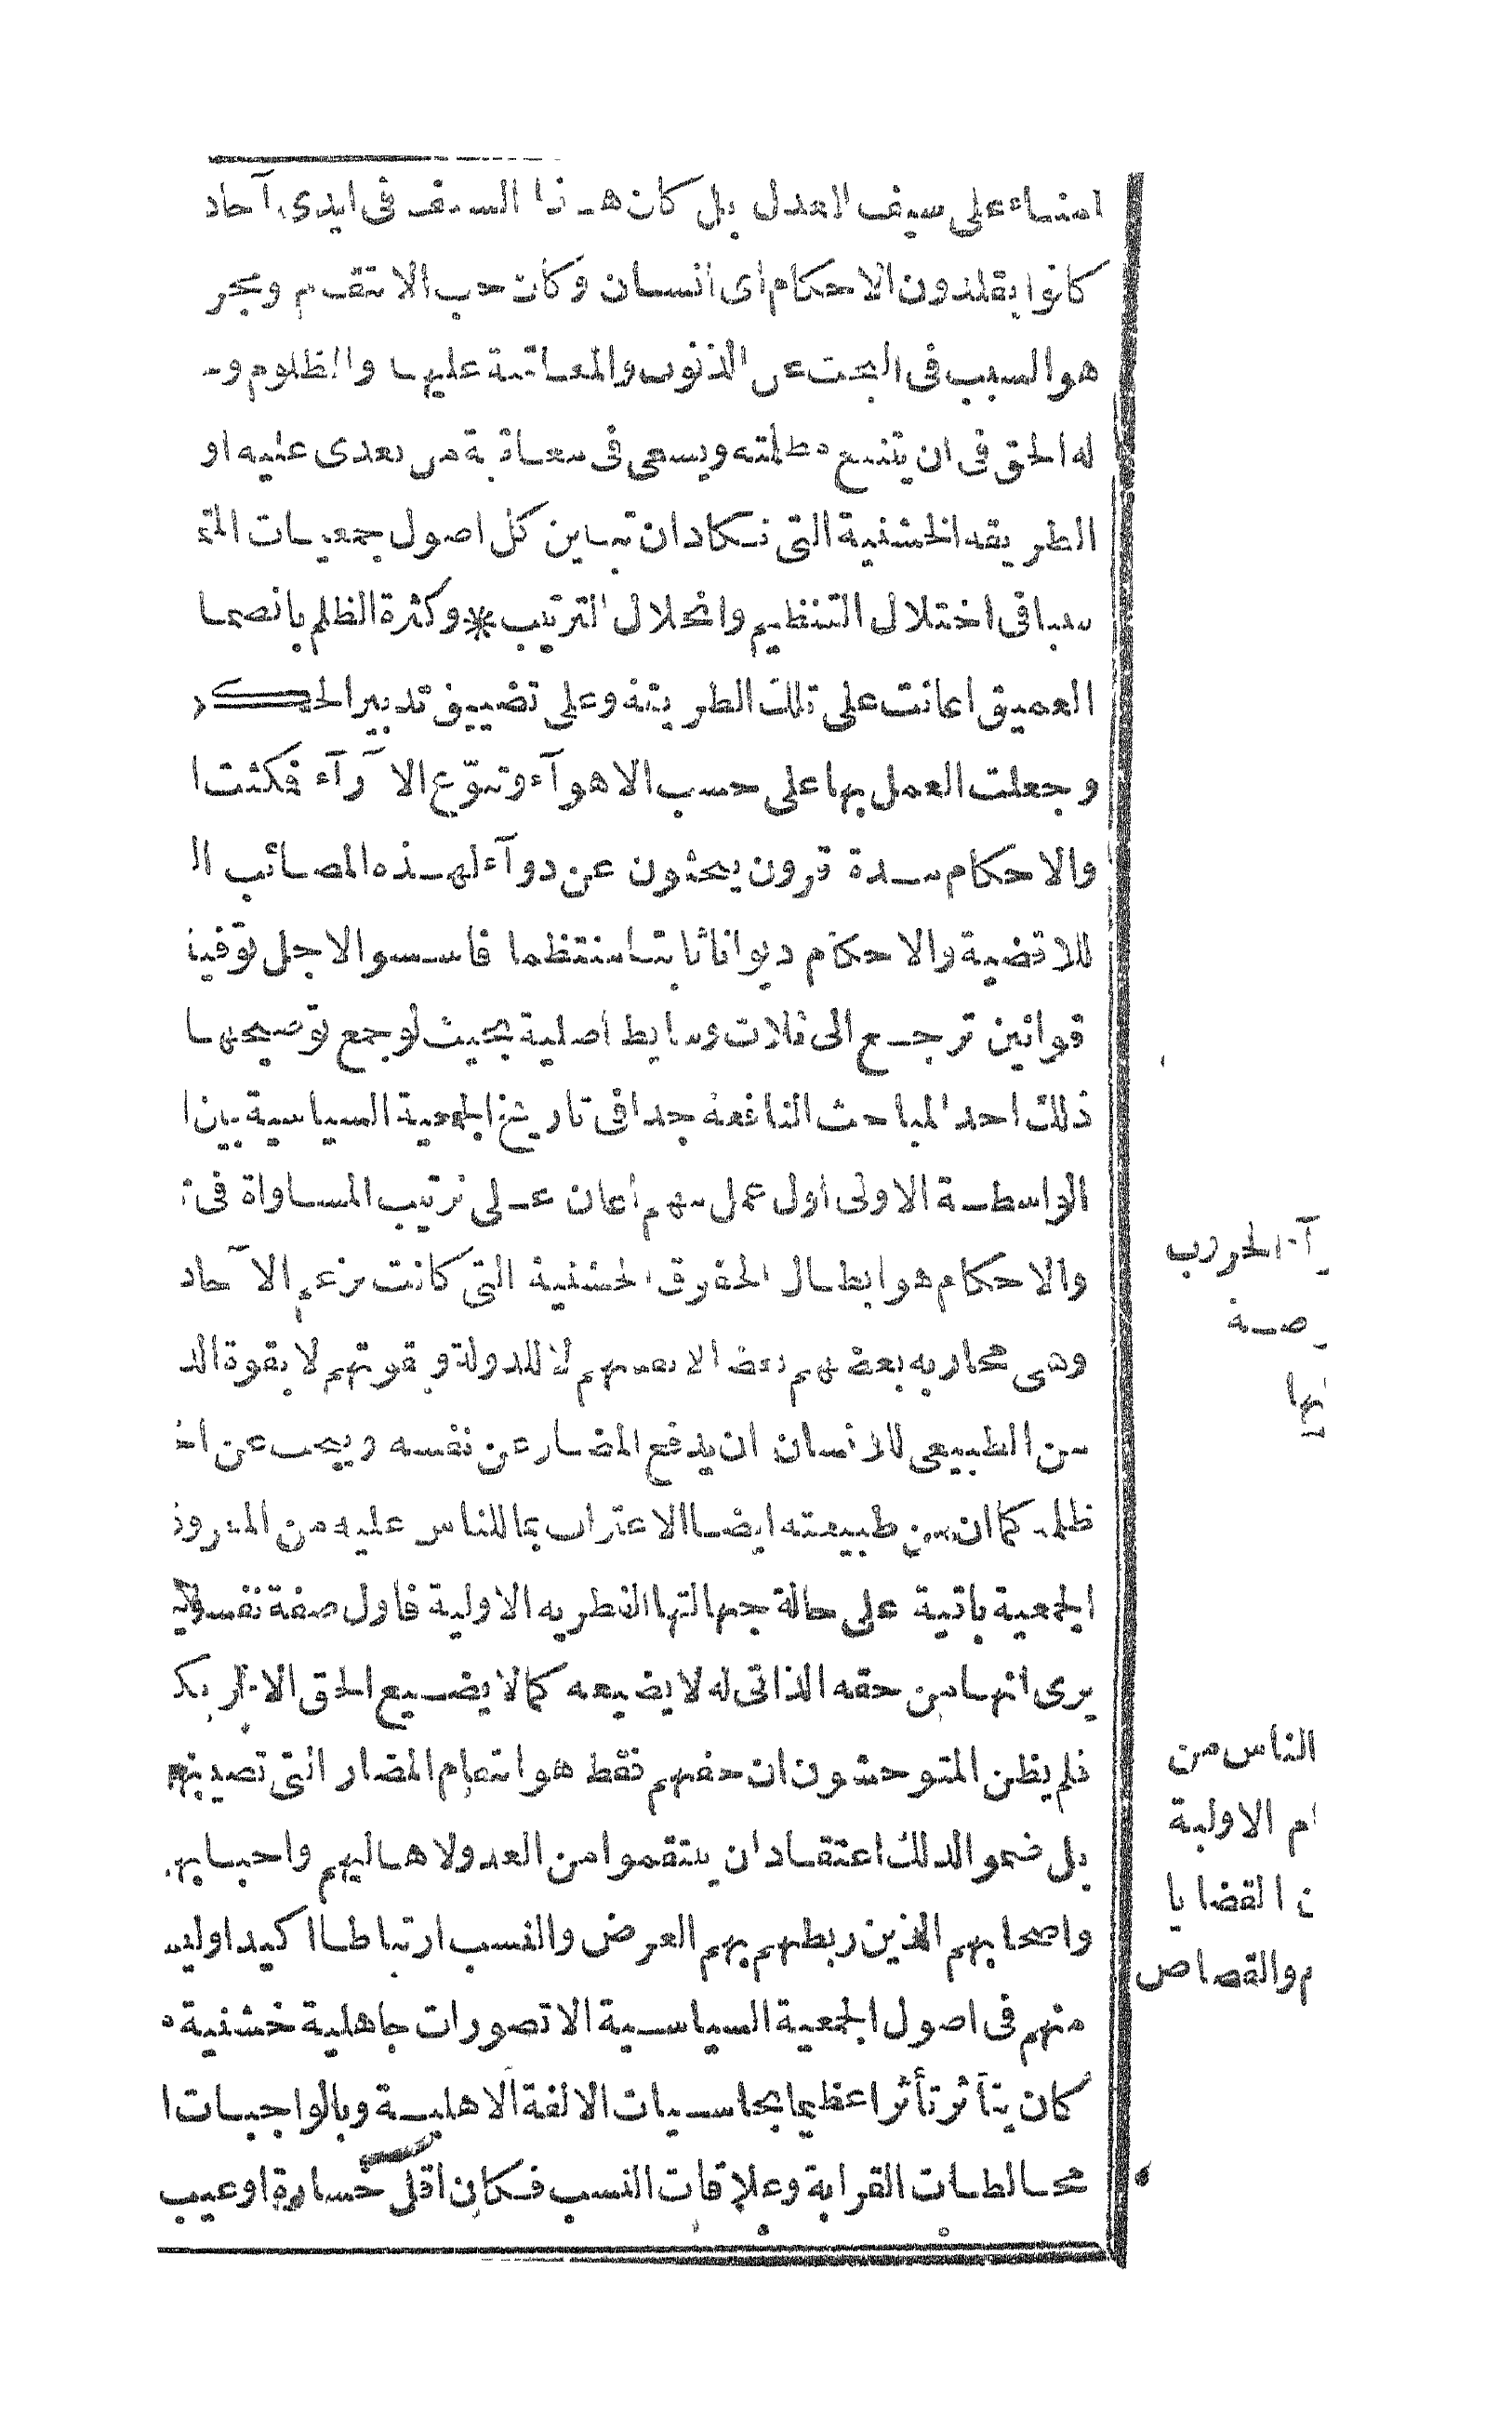 امناء على سيف العدل بل كان هذا السيف فى ايدى آحاد
كانوا يقلدون الاحكام اى انسان وكان حب الانتقام وجر
هو السبب فى البحث عن الذنوب والمعاقبة عليها والمظلوم و
له الحق فى ان يتبع مظلمته ويسعى فى معاقبة من تعدى عليه او
الطريقه الخشنية التى تكاد ان تباين كل اصول جمعيات المت
سببا فى اختلال التنظيم وانحلال الترتيب * وكثرة الظلم بانضما
العميق اعانت على تلك الطريقة وعلى تضييق تدبير الحك
وجعلت العمل بها على حسب الاهوآء وتنوّع الآرآء فمكثت ا
والاحكام مدة قرون يبحثون عن دوآء لهذه المصائب ال
للاقضية والاحكام ديوانا ثابتا منتظما فاسسوا لاجل توفيق
قوانين ترجع الى ثلاث وسايط اصلية بحيث لو جمع توضيحها
ذلك احد المباحث النافعة جدا فى تاريخ الجمعية السياسية بين ا
الواسطة الاولى اول عمل مهم اعان على ترتيب المساواة فى
والاحكام هو ابطال الحقوق الخشنية التى كانت بزعم الآحاد
وهى محاربه بعضهم بعضا لانفسهم لا للدولة وبقوتهم لا بقوة الد
من الطبيعى للانسان ان يدفع المضار عن نفسه ويبحث عن اخ
ظلمه كما ان من طبيعته ايضا الاعتراف بما للناس عليه من
الجمعية باقية على حالة جهالتها الفطريه الاولية فاول صفة نفسو
يرى انها من حقه الذاتى له لا يضيعه كما لا يضيع الحق الآخر
فلم يظن المتوحشون ان حقهم فقط هو انتقام المضار التى تصيبهم
بل ضموا لذلك اعتقاد ان ينتقموا من العدو لاهاليهم واحبابهم
واصحابهم الذين ربطهم بهم العرض والنسب ارتباطا اكيدا وليس
منهم فى اصول الجمعية السياسية الا تصورات جاهلية خشنية
كان يتأثر تأثرا عظيما بحاسيات الالفة الاهلية وبالواجبات ا
مخالطات القرابة وعلاقات النسب فكان اقل خسارة او عيب
الحرب
الناس من
ام الاولية
القضايا
والقصاص